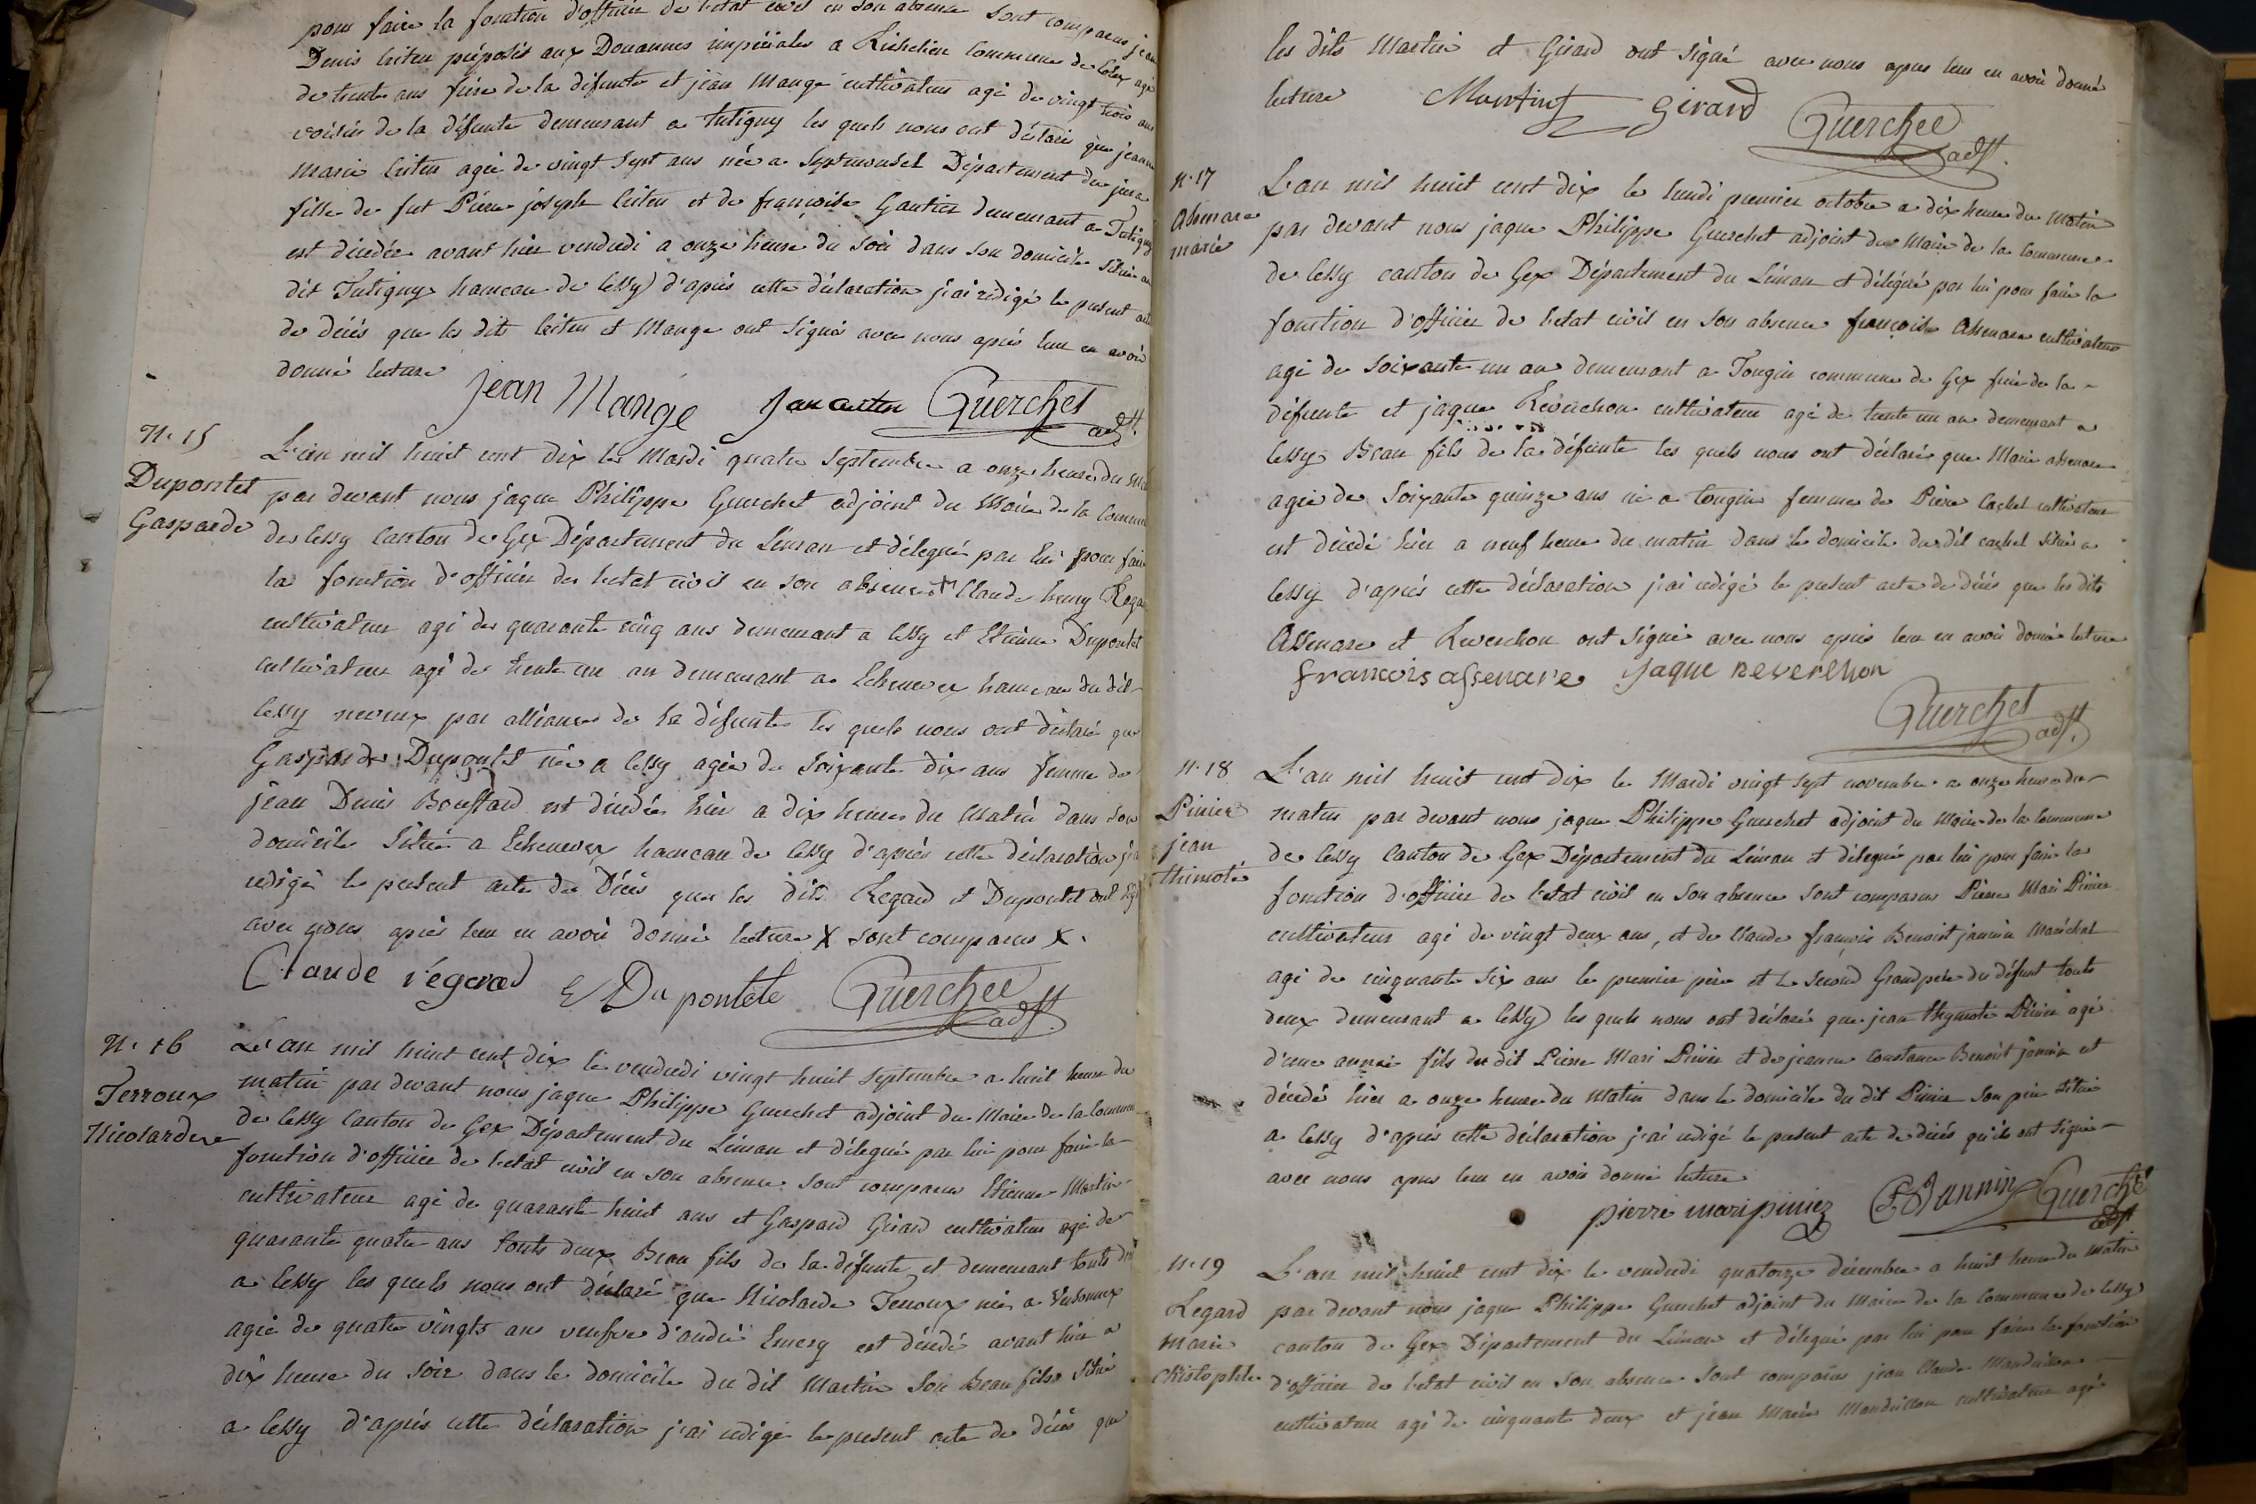 pour faire la fonction d'officier de l'etat civil en son absence sont comparus jean
Denis preposés aux Douannes imperiales a Richelieu Commune de agé
de trente ans frère de la défunte et jean Mange cultivateur agé de vingt trois ans
voisin de la défunte demeurant a Tutigny les quels nous ont déclaré que jeanne
Marie agée de vingt sept ans née a Septmoncel Département du jura
fille de fut Pierre joseph et de françoise Gautier demeurant a Tutigny
est décédée avant hier vendredi a onze heure du soir dans son domicile situé au
dit Tutigny hameau de Cessy d'après cette déclaration j'ai rédigé le present acte
de décès que les dits et Mange ont signé avec nous après leur en avoir
donné lecture
jean Mange Guerchet adjt.
N. 15
Dupontet
Gasparde
L'an mil huit cent dix le Mardi quatre Septembre a onze heure du
par devant nous jaque Philippe Guerchet adjoint du Maire de la Commune
de Cessy Canton de Gex Département du Léman et délegué par lui pour faire
la fonction d'officier de l'etat civil en son absence X Claude henry Regard
cultivateur agé de quarante cinq ans demeurant a Cessy et Etienne Dupontet
cultivateur agé de trente un an demeurant a Echenevex hameau du dit
Cessy neveux par alliance de la défunte les quels nous ont déclaré que
Gasparde Dupontet née a Cessy agée de Soixante dix ans femme de
jean Denis Bouffard est décédée hier a dix heures du Matin dans son
domicile situé a Echenevex hameau de Cessy d'après cette déclaration j'ai
redigé le present acte de Décès que les dits Regard et Dupontet ont signé
avec nous après leur en avoir donné lecture X sont comparus X.
Claude régard E Dupontete Guerchet adjt.
N. 16
Terroux
Nicolarde
L'an mil huit cent dix le vendredi vingt huit Septembre a huit heure du
matin par devant nous jaque Philippe Guerchet adjoint du Maire de la Commune
de Cessy Canton de Gex Département du Léman et délegué par lui pour faire la
fonction d'officier de l'etat civil en son absence sont comparus Etienne Martin
cultivateur agé de quarante huit ans et Gaspard Girard cultivateur agé de
quarante quatre ans touts deux Beau fils de la défunte et demeurant touts deux
a Cessy les quels nous ont déclaré que Nicolarde Terroux née a Versonnex
agée de quatre vingts ans veufve d'andré Emery est décédé avant hier a
dix heure du soir dans le domicile du dit Martin Son Beau fils situé
a Cessy d'après cette déclaration j'ai redigé le present acte de décès que
les dits Martin et Girard ont signé avec nous apres leur en avoir donné
lecture Martin Girard Guerchet adjt.
N. 17
Assenare
marie
L'an mil huit cent dix le lundi premier octobre a dix heure du Matin
par devant nous jaque Philippe Guerchet adjoint du Maire de la Commune
de Cessy canton de Gex Département du Léman et délégué par lui pour faire la
fonction d'officier de l'etat civil en son absence françois Assenare cultivateur
agé de soixante un an demeurant a Tougin commune de Gex frère de la
défunte et jaque Reverchon cultivateur agé de trente un an demeurant a
Cessy Beau fils de la défunte les quels nous ont déclaré que Marie assenare
agée de Soixante quinze ans née a tougin femme de Pierre Cachet cultivateur
est décédé hier a neuf heure du matin dans le domicile du dit cachet situé a
Cessy d'après cette déclaration j'ai redigé le present acte de décès que les dits
Assenare et Reverchon ont signé avec nous après leur en avoir donné lecture
francois assenare jaque reverchon
Guerchet adjt.
N. 18
Pinier
jean
thimoté
L'an mil huit cent dix le Mardi vingt sept novembre a onze heure du
matin par devant nous jaque Philippe Guerchet adjoint du Maire de la Commune
de Cessy Canton de Gex Département du Léman et délegué par lui pour faire la
fonction d'officier de l'etat civil en son absence sont comparus Pierre Mari Pinier
cultivateur agé de vingt deux ans, et de Claude françois Benoist jannin Maréchal
agé de cinquante six ans le premier père et le second Grandpere du défunt touts
deux demeurant a Cessy les quels nous ont déclaré que jean thymoté Pinier agé
d'une année fils du dit Pierre Mari Pinier et de jeanne Constance Benoist jannin est
décédé hier a onze heure du Matin dans le domicile du dit Pinier son père situé
a Cessy d'après cette déclaration j'ai redigé le present acte de décès qu'ils ont signé
avec nous apres leur en avoir donné lecture
pierre mari pinier Jannin Guerchet adjt
N. 19
Regard
Marie
Christophle
L'an mil huit cent dix le vendredi quatorze décembre a huit heure du matin
par devant nous jaque Philippe Guerchet adjoint du Maire de la Commune de Cessy
canton de Gex Département du Léman et délegué par lui pour faire la fonction
d'officier de l'etat civil en son absence sont comparus jean Claude Mandrillon
cultivateur agé de cinquante deux et jean Marie Mandrillon cultivateur agé